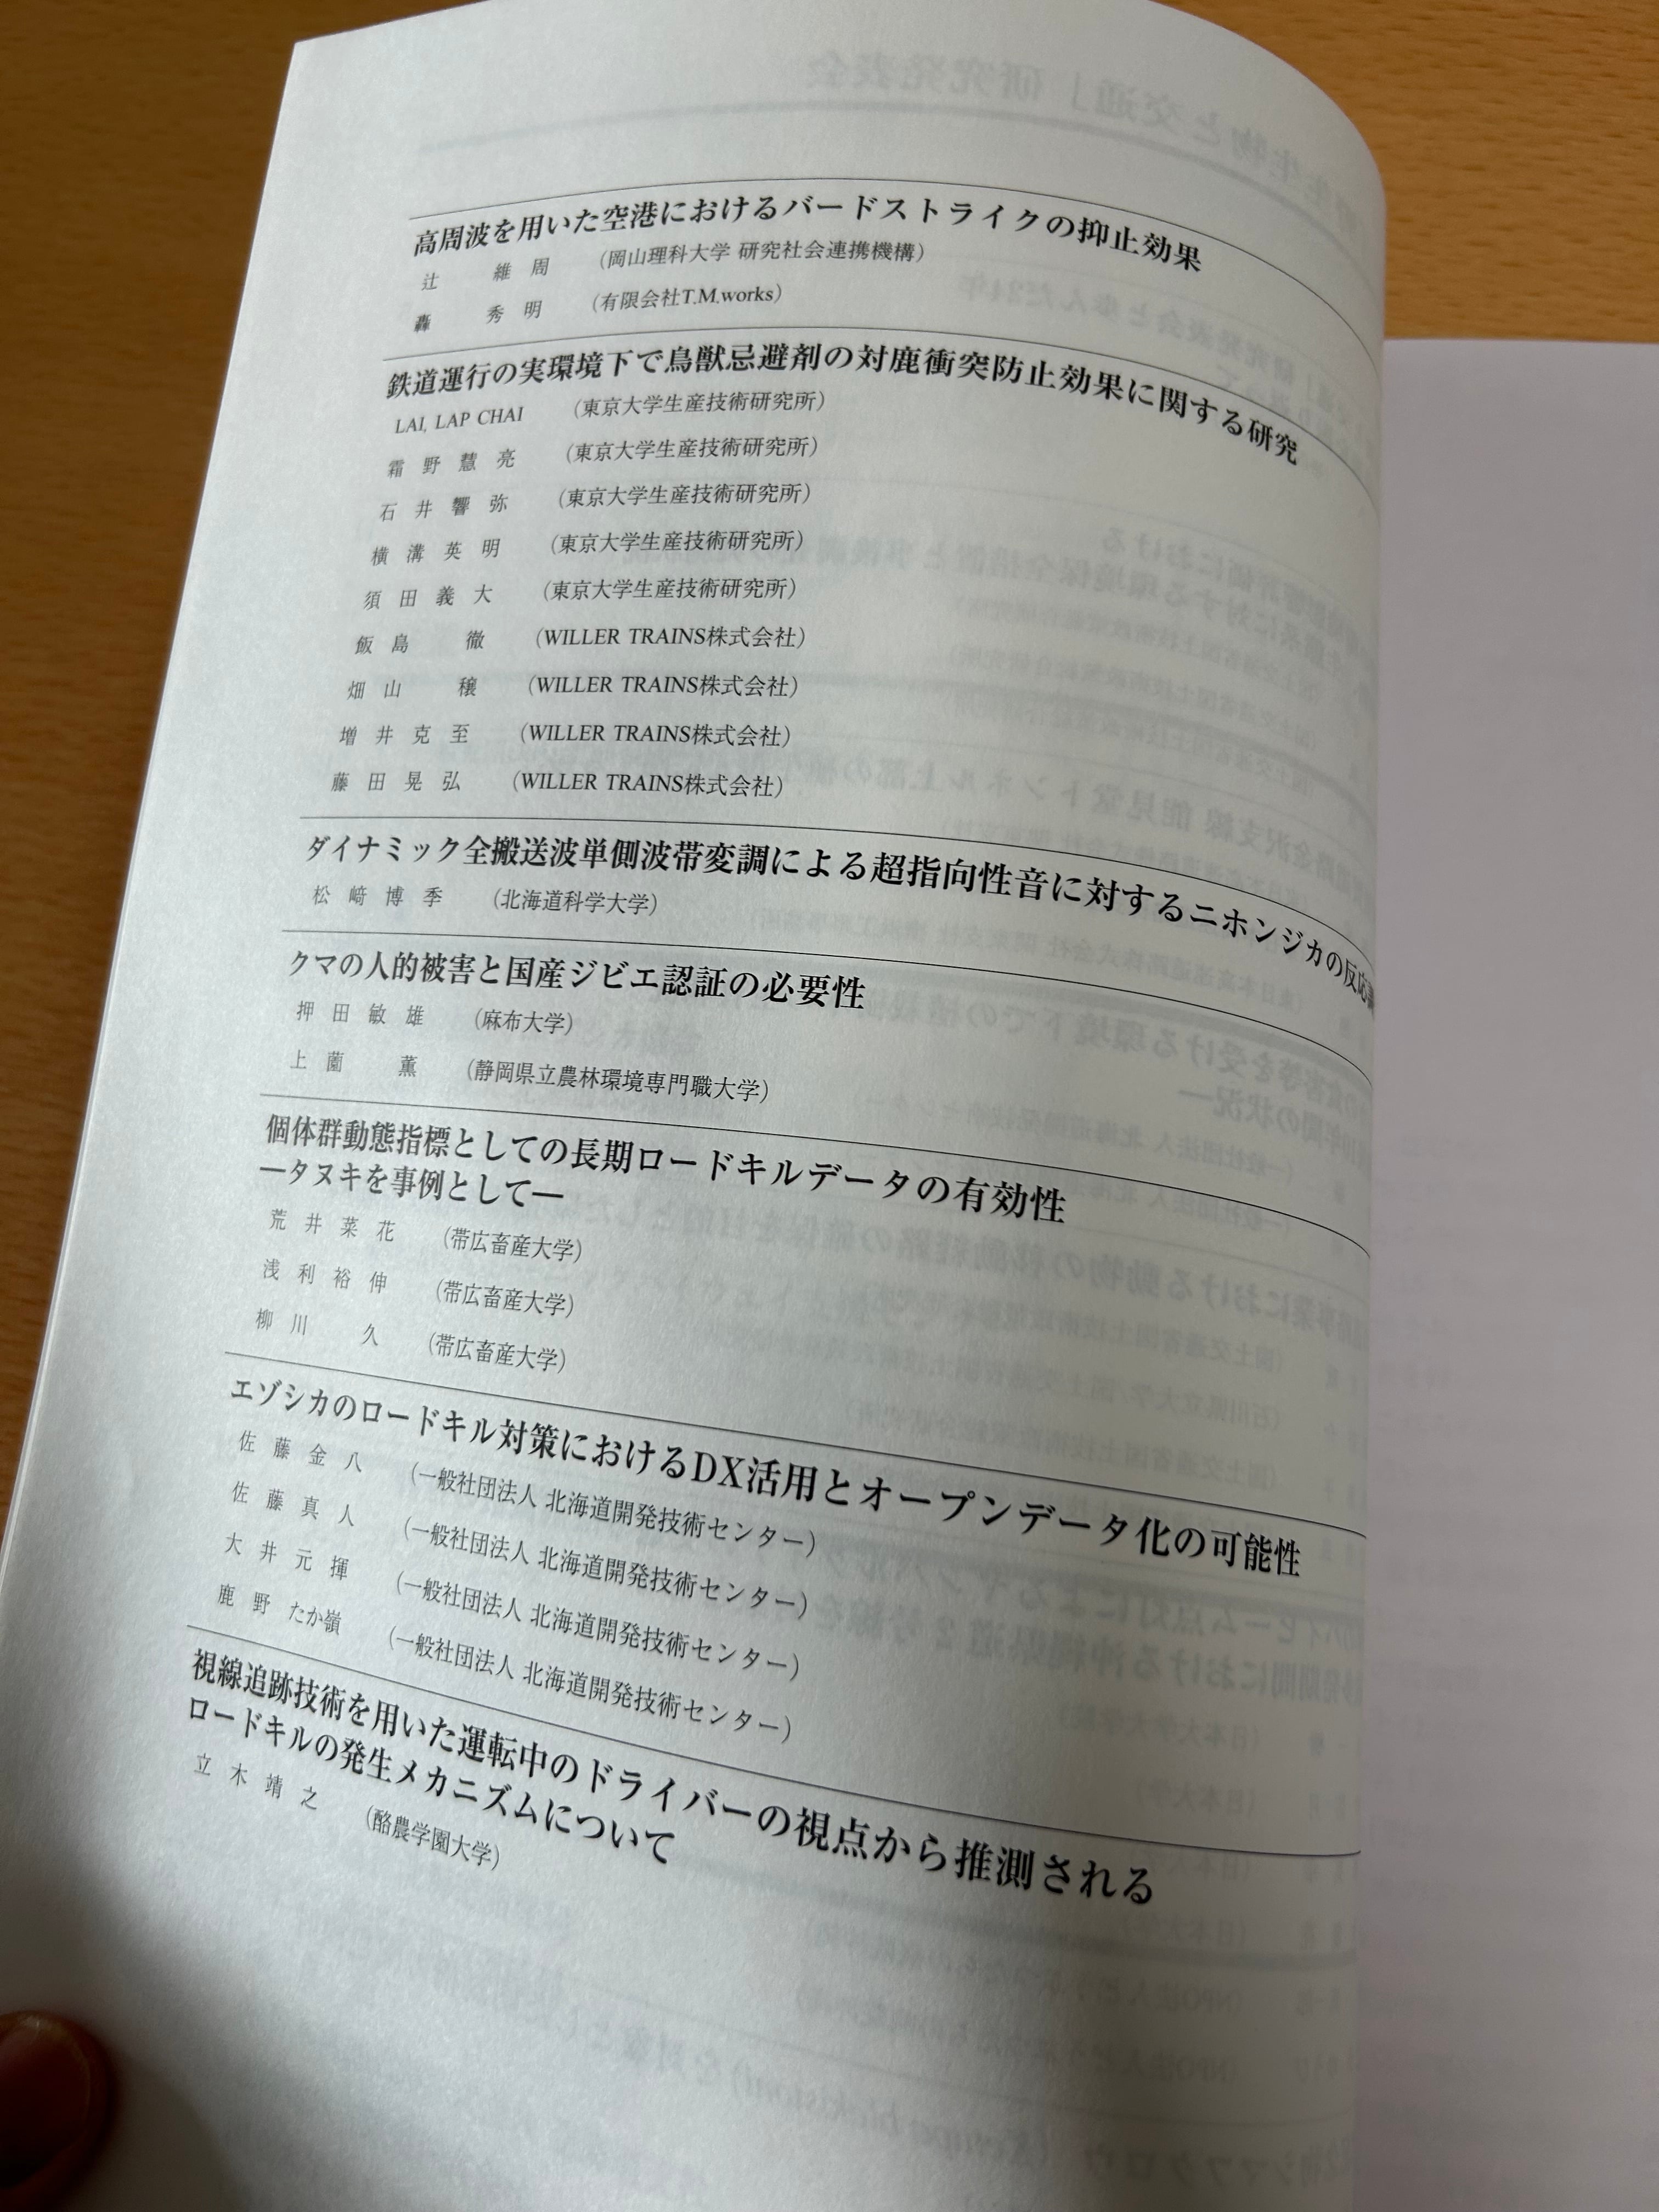 高周波を用いた空港におけるバードストライクの抑止効果
辻 維周 (岡山理科大学 研究社会連携機構)
轟 秀明 (有限会社T.M.works)
鉄道運行の実環境下で鳥獣忌避剤の対鹿衝突防止効果に関する研究
LAI, LAP CHAI (東京大学生産技術研究所)
霜野慧亮 (東京大学生産技術研究所)
石井響弥 (東京大学生産技術研究所)
横溝英明 (東京大学生産技術研究所)
須田義大 (東京大学生産技術研究所)
飯島 徹 (WILLER TRAINS株式会社)
畑山 穣 (WILLER TRAINS株式会社)
増井克至 (WILLER TRAINS株式会社)
藤田晃弘 (WILLER TRAINS株式会社)
ダイナミック全搬送波単側波帯変調による超指向性音に対するニホンジカの反応
松﨑博季 (北海道科学大学)
クマの人的被害と国産ジビエ認証の必要性
押田敏雄 (麻布大学)
上薗 薫 (静岡県立農林環境専門職大学)
個体群動態指標としての長期ロードキルデータの有効性
―タヌキを事例として―
荒井菜花 (帯広畜産大学)
浅利裕伸 (帯広畜産大学)
柳川 久 (帯広畜産大学)
エゾシカのロードキル対策におけるDX活用とオープンデータ化の可能性
佐藤金八 (一般社団法人 北海道開発技術センター)
佐藤真人 (一般社団法人 北海道開発技術センター)
大井元揮 (一般社団法人 北海道開発技術センター)
鹿野たか嶺 (一般社団法人 北海道開発技術センター)
視線追跡技術を用いた運転中のドライバーの視点から推測される
ロードキルの発生メカニズムについて
立木靖之 (酪農学園大学)